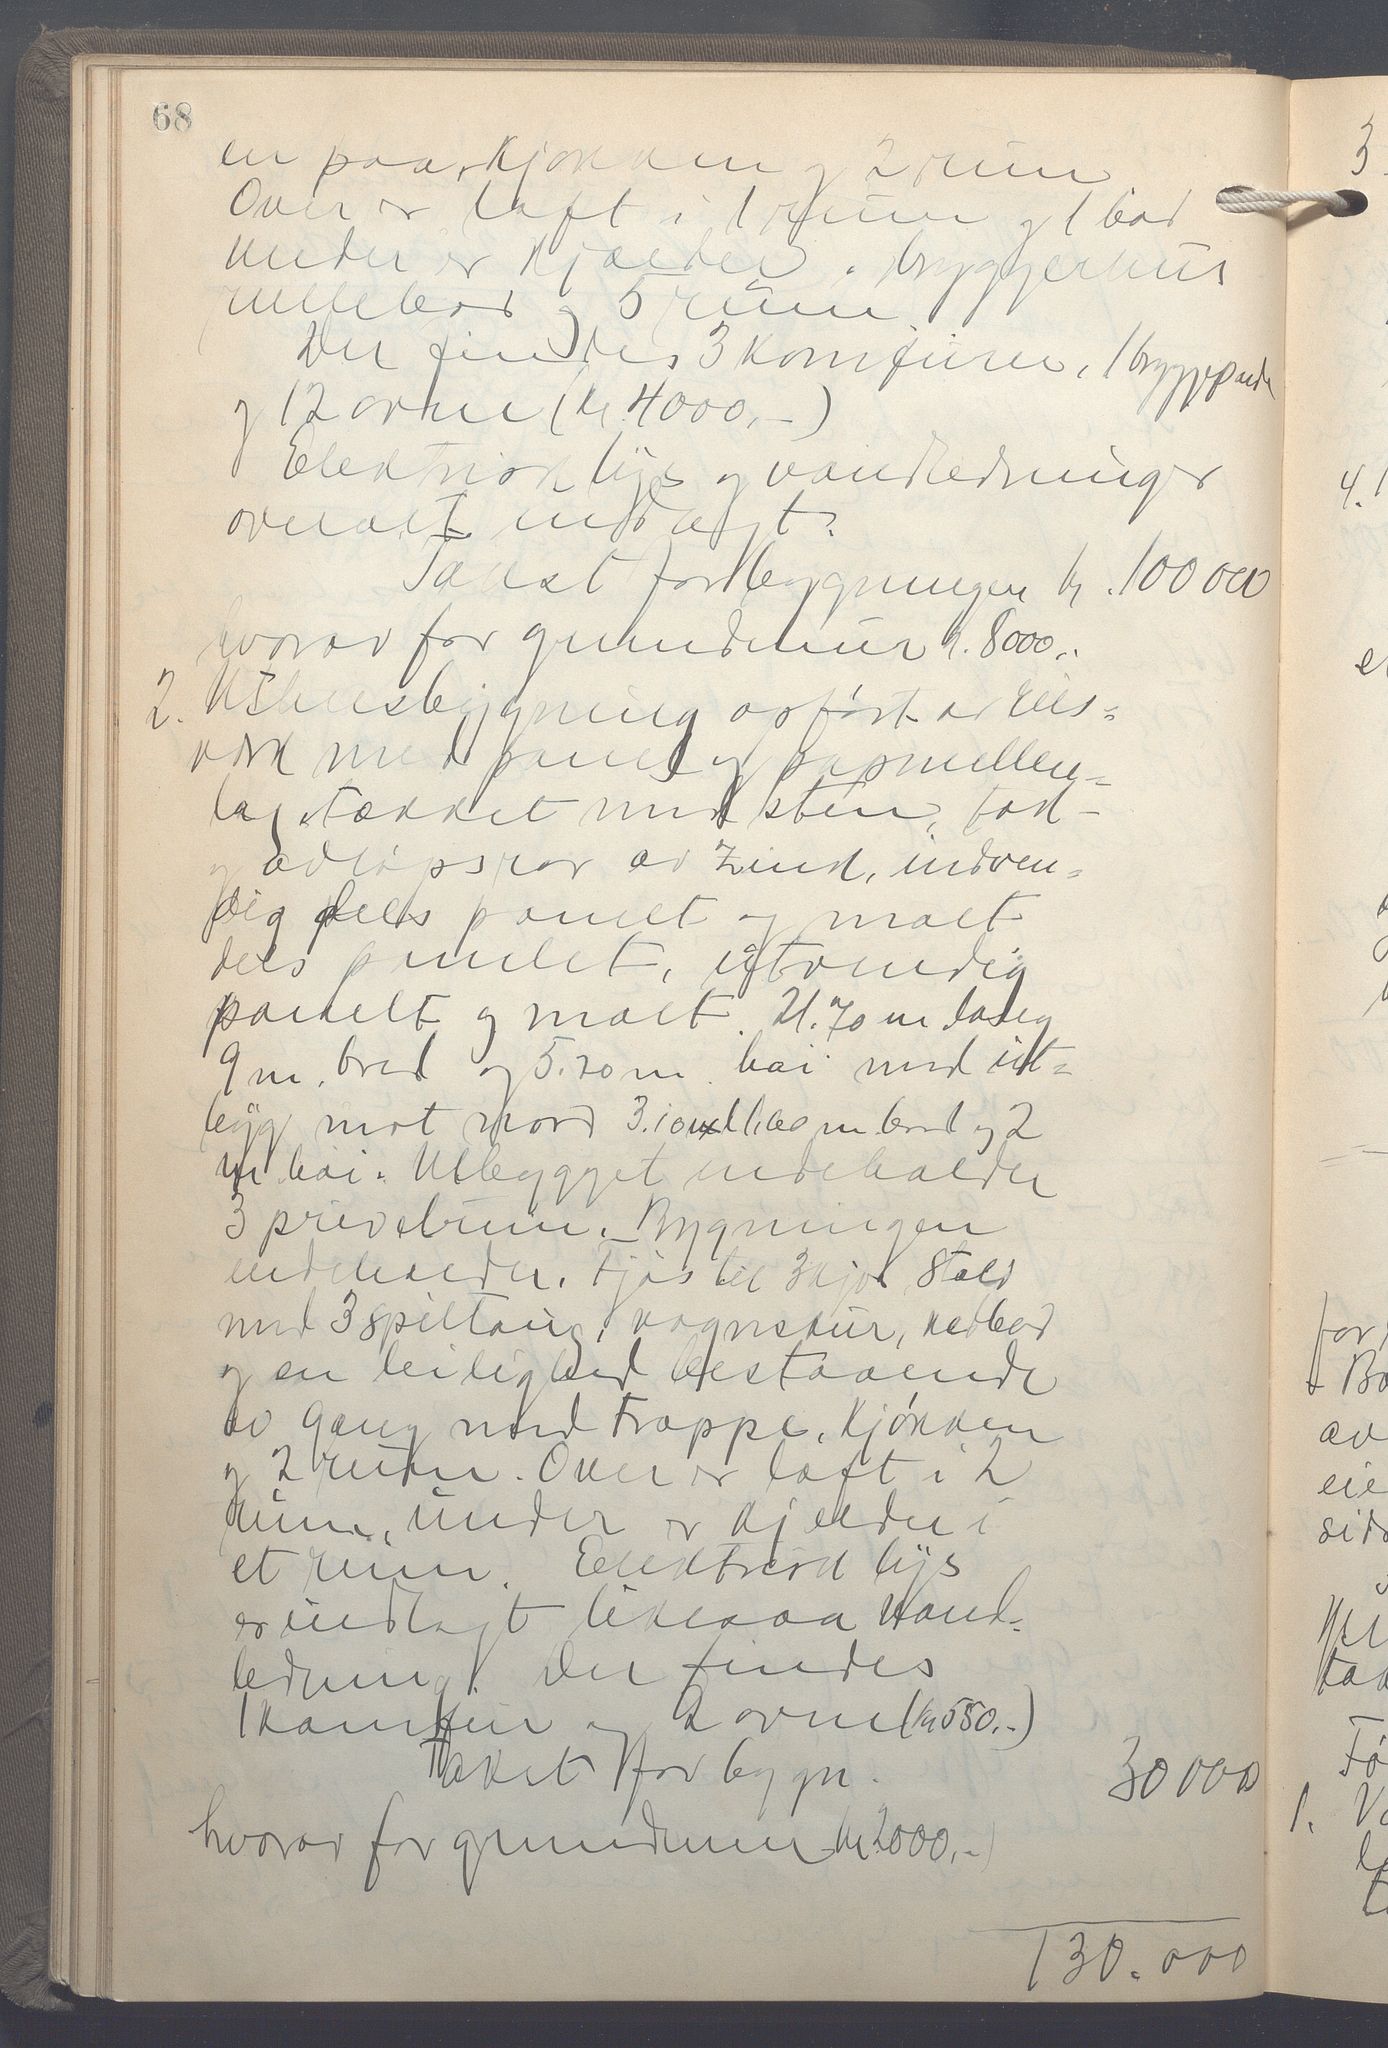 68
en paa, kjøkken og 2 rum
Over er loft i 1 rum og 1 bod
Under er kjælder, bryggerhus
rullebod og 5 rum
Der findes 3 komfurer, 1 bryggepande
og 12 ovne (kr. 4000,-)
Elektrisk lys og vandledninger
overalt indlagt.
Takst for bygningen kr. 100 000
hvorav for grundmur kr. 8000,-
2. Uthusbygning opført av bins=
verk med panel og papmellem=
lag, tækket med sten, tak-
og avløpsrør av zink, indven=
dig dels panelt og malt
dels panelet, utvendig
panelt og malt. 21.70 m lang
9 m. bred og 5.20 m. høi med ut=
byg mot nord 3.10 x 1.20 m bred og 2
m høi. Utbygget indeholder
3 privetrum. Bygningen
indeholder, fjøs til 3 kjør Stald
med 3 spiltaug, vognskur, vedbod
og en leilighed bestaaende
av gang med trappe, kjøkken
og 2 rum. Over er loft i 2
rum, under er kjælder i
et rum. Elektrisk lys
er indlagt likesaa vand-
ledning. Der findes
1 komfur og 2 ovne (kr 550.-)
Takst for bygn. 30 000
hvorav for grundmur kr. 2000,-
130.000